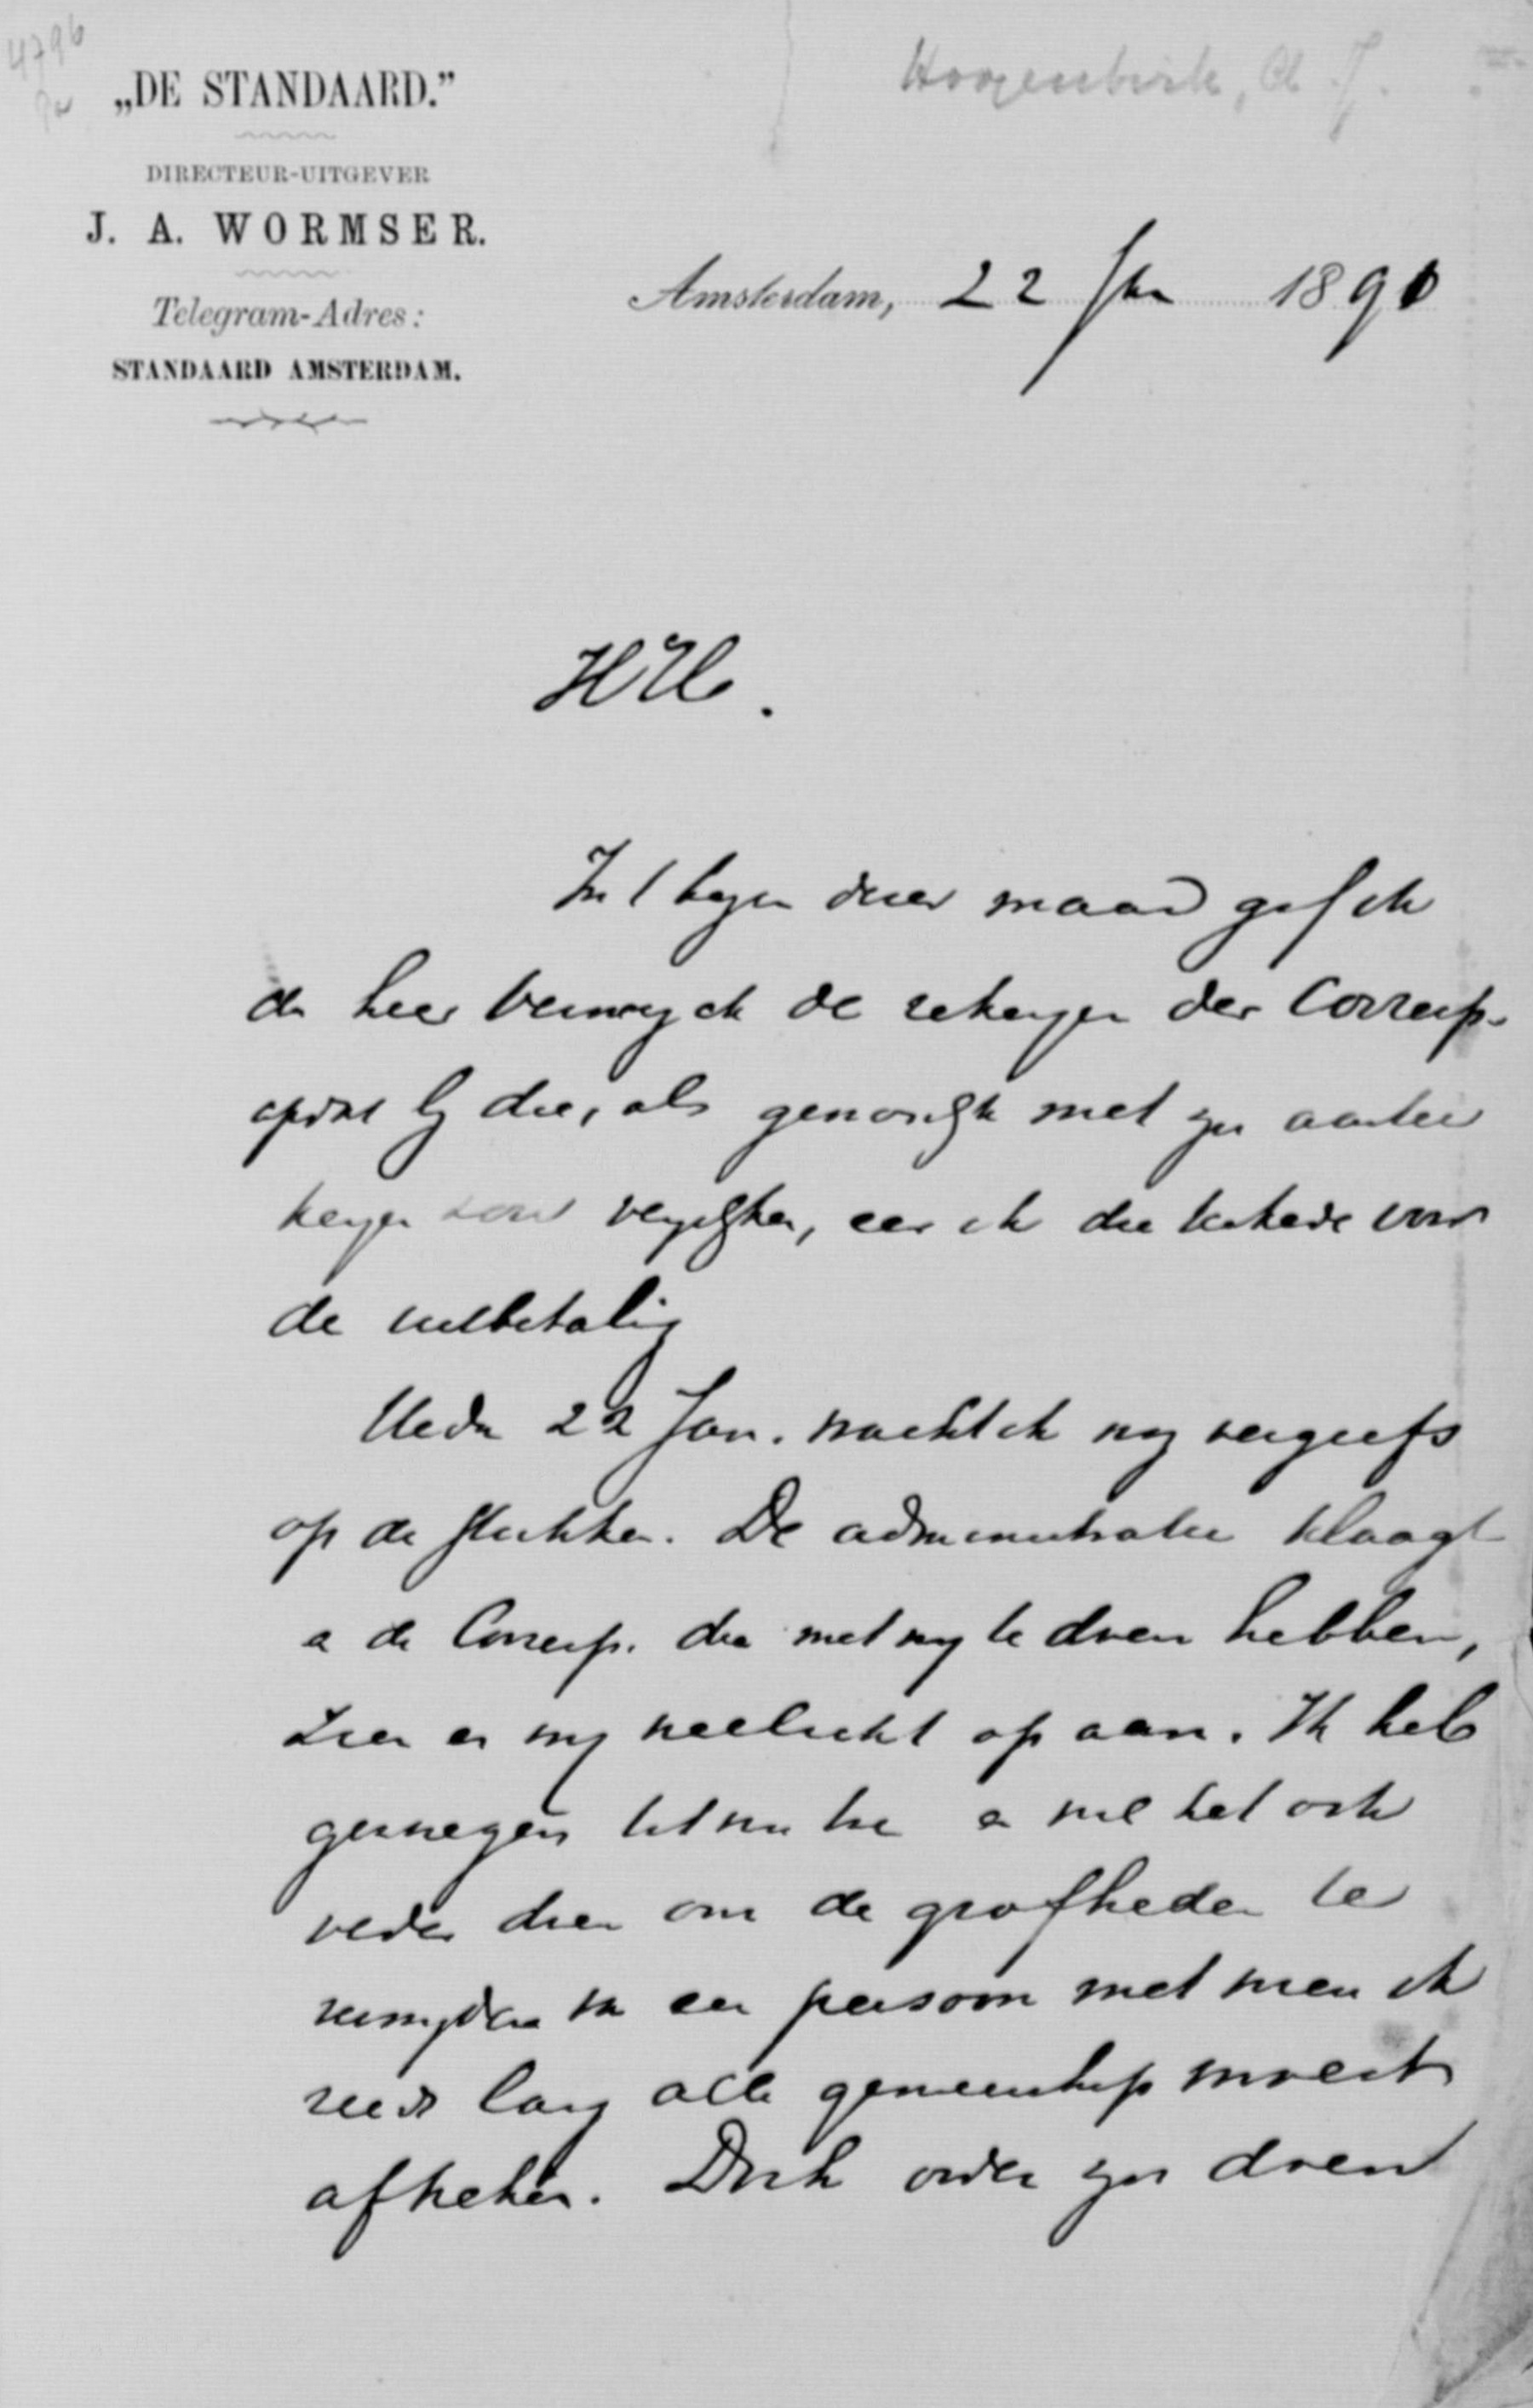 4796
„DE STANDAARD.”
DIRECTEUR-UITGEVER
J. A. WORMSER.
Telegram-Adres:
STANDAARD AMSTERDAM.
Hoogenbirk, A. J.
Amsterdam, 22 Jan 1890
In 't begin dezer maand gaf ik
den heer de rekeningen der Corresp.
opdat hij die, als gewoonlijk met zijn aantee
keningen zou vergelijken, eer ik die teekende voor
de uitbetaling
Heden 22 Jan. wacht ik nog vergeefs
op de stukken. De administratie klaagt
en de Corresp. die met mij te doen hebben,
zien er mij wellicht op aan. Ik heb
gezwegen tot nu toe en wil het ook
verder doen om de grofheden te
vermijden van een persoon met wien ik
reeds lang alle gemeenschap moest
afbreken. Doch onder zijn doen